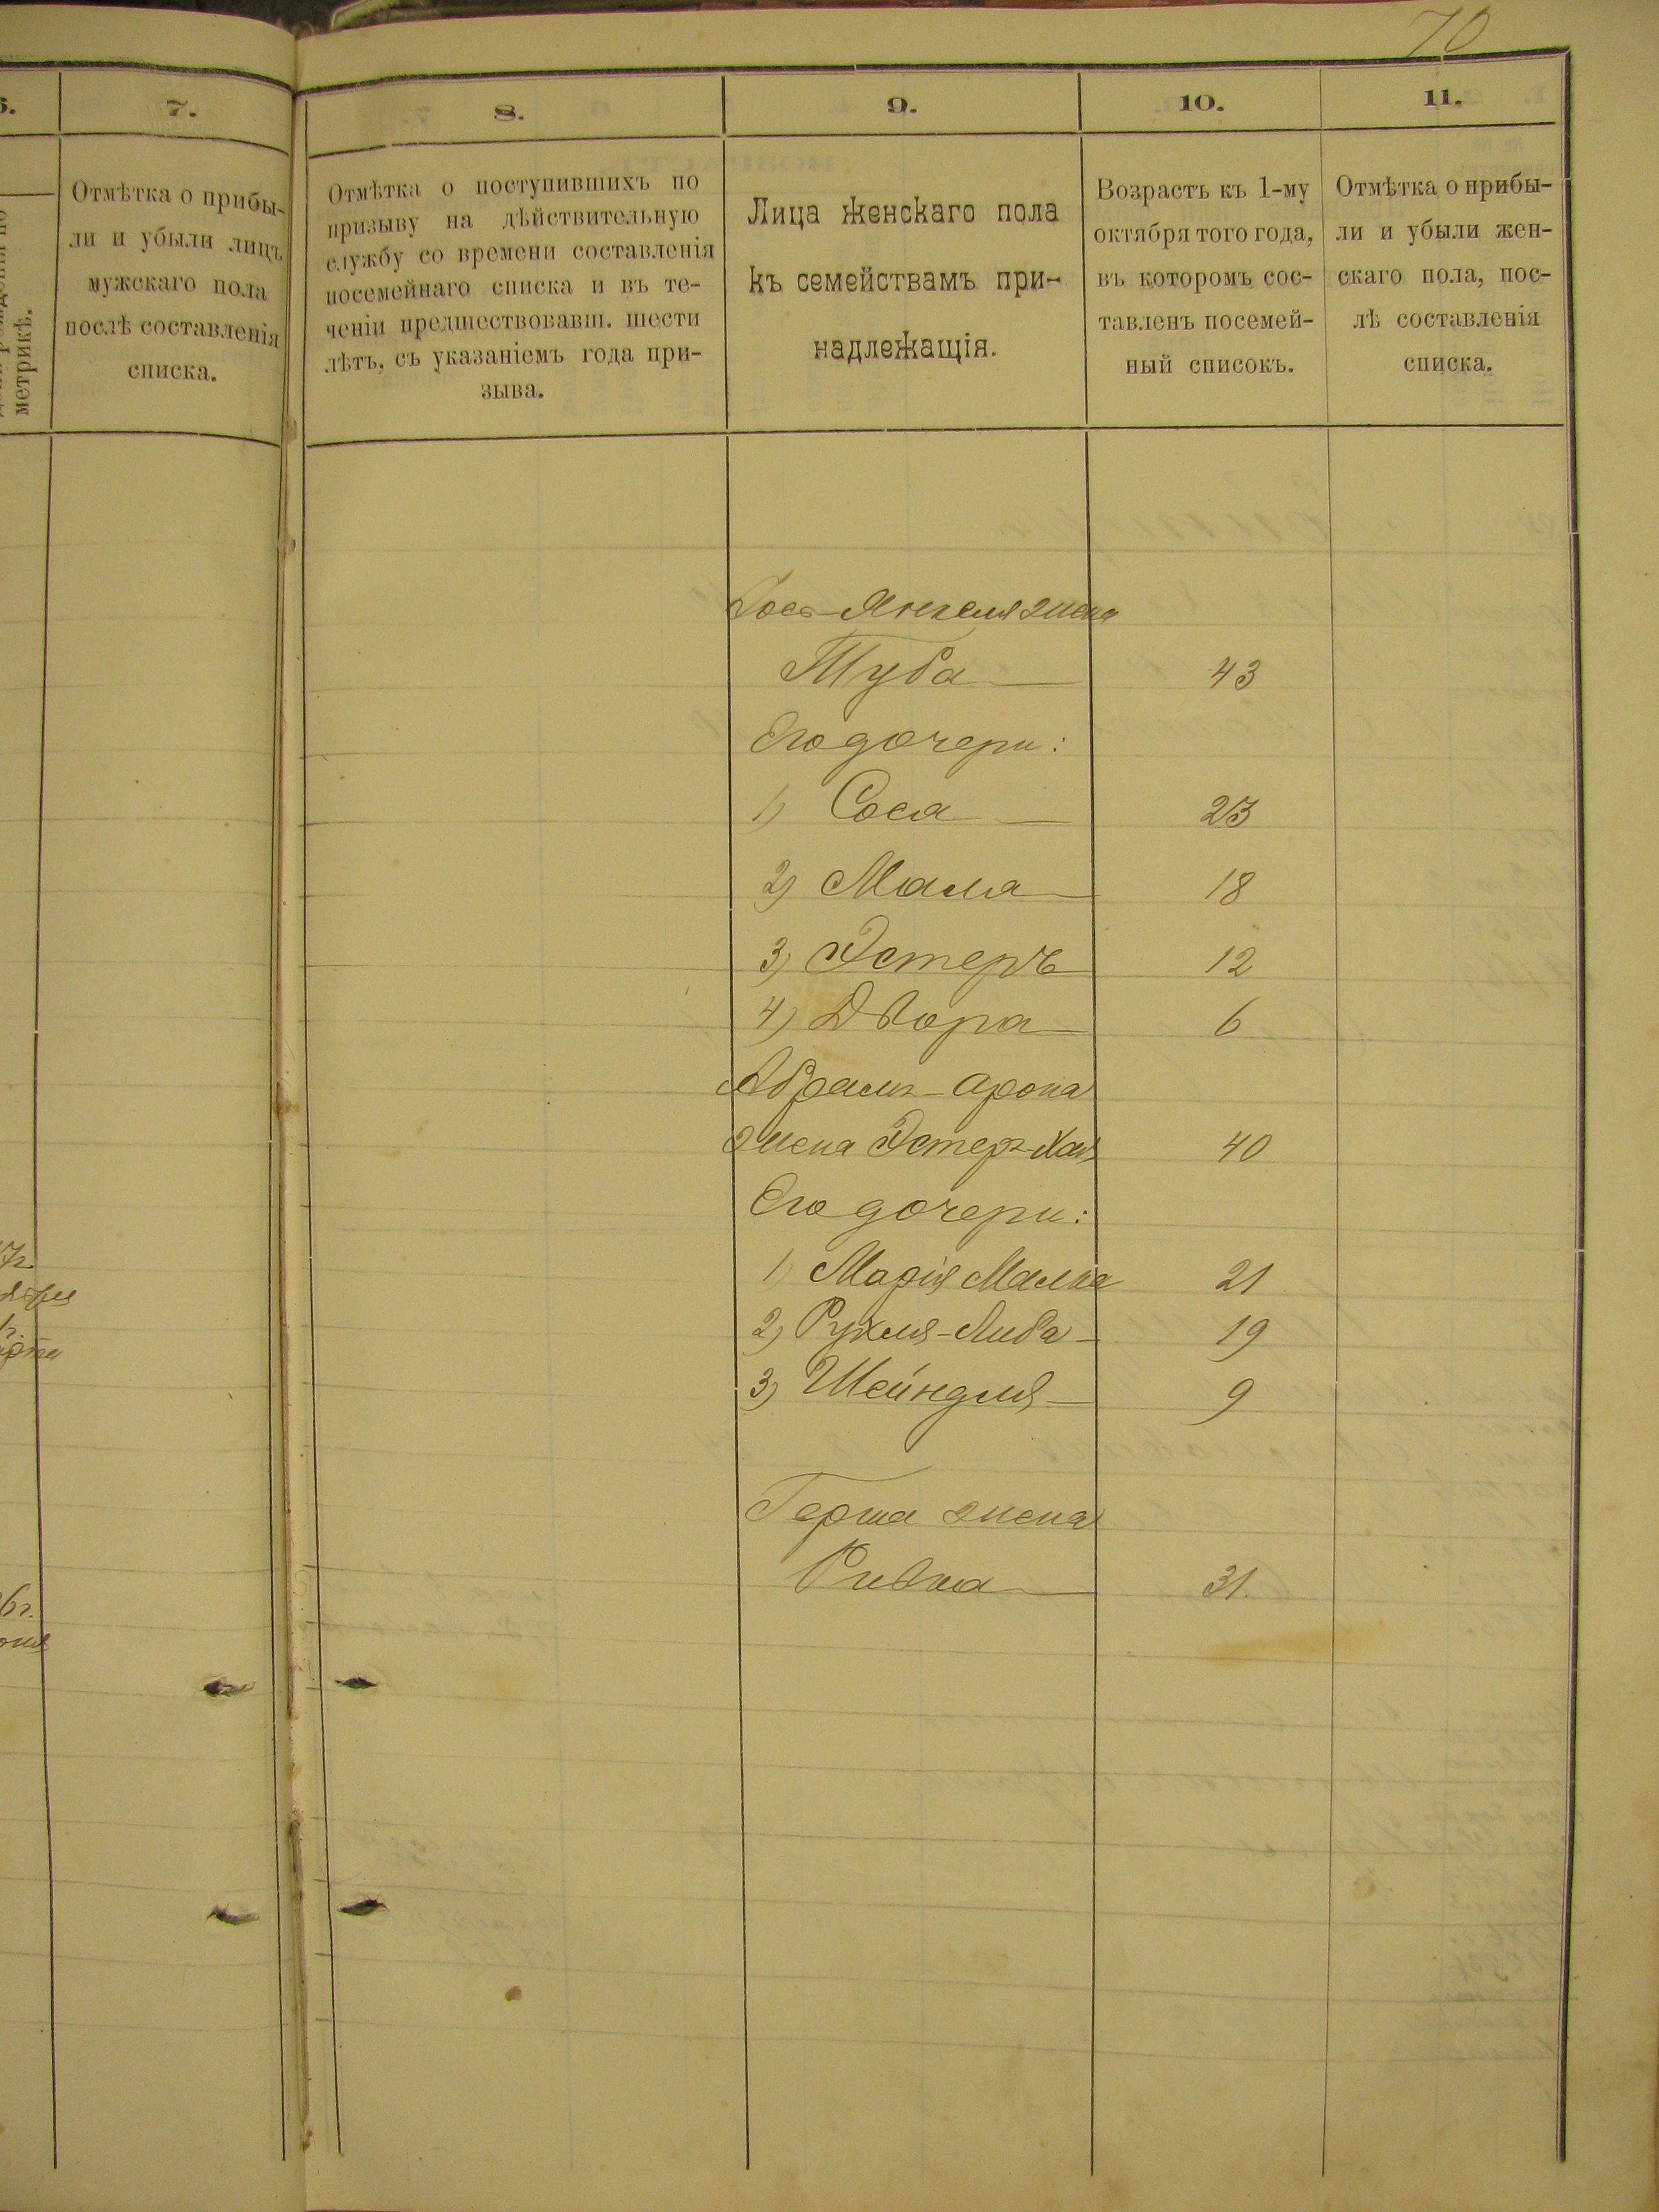 70
7.
8.
9.
10.
11.
Отмѣтка о прибы-
ли и убыли лицъ
мужскаго пола
послѣ составленія
списка.
метрикѣ.
Отмѣтка о поступившихъ по
призыву на дѣйствительную
службу со времени составленія
посемейнаго списка и въ те-
ченіи предшествовавш. шести
лѣтъ, съ указаніемъ года при-
зыва.
Лица женскаго пола
къ семействамъ при-
надлежащія.
Возрастъ къ 1-му
октября того года,
въ которомъ сос-
тавленъ посемей-
ный списокъ.
Отмѣтка о прибы-
ли и убыли жен-
скаго пола, пос-
лѣ составленія
списка.
Янкеля жена
Туба 43
Его дочери:
1) Соса 23
2) Мала 18
3) Эстеръ 12
4) Двора 6
Абрамъ-Арона
жена Эстеръ-Хая 40
Его дочери:
1) Марія Малка 21
2) Рухля-Либа 19
3) Шейндля 9
Герша жена
Ривка 31.